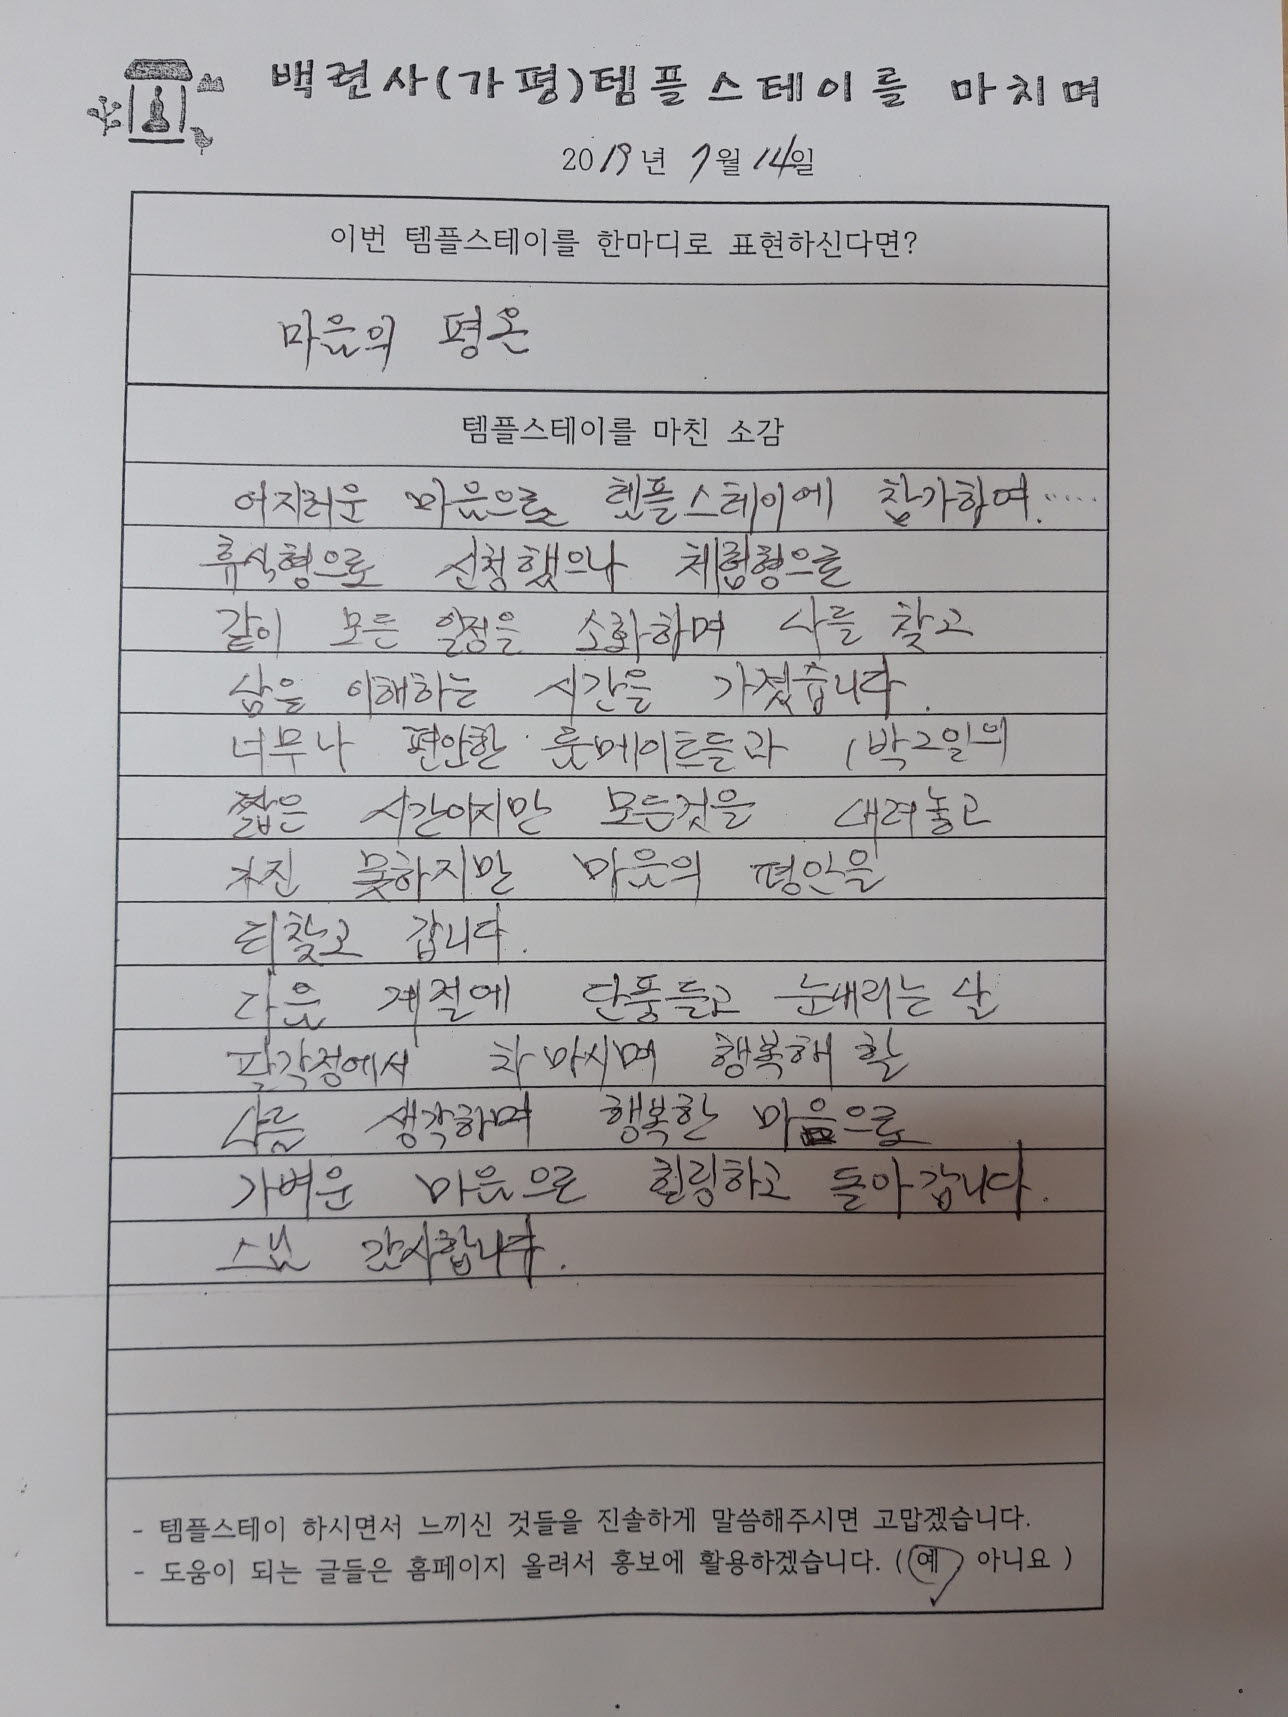 백련사(가평)템플스테이를 마치며
2019년 7월 14일
이번 템플스테이를 한마디로 표현하신다면?
마음의 평온
템플스테이를 마친 소감
어지러운 마음으로 템플스테이에 참가하여.....
휴식형으로 신청했으나 체험형으를
같이 모든 일정을 소화하며 나를 찾고
삶을 이해하는 시간을 가졌습니다.
너무나 편안한 룸메이트들과 1박2일의
짧은 시간이지만 모든것을 내려놓고
가진 못하지만 마음의 평안을
되찾고 갑니다.
다음 계절에 단풍들고 눈내리는 날
팔각정에서 차 마시며 행복해 할
나를 생각하며 행복한 마음으로
가벼운 마음으로 힐링하고 돌아갑니다.
스님 감사합니다.
- 템플스테이 하시면서 느끼신 것들을 진솔하게 말씀해주시면 고맙겠습니다.
- 도움이 되는 글들은 홈페이지 올려서 홍보에 활용하겠습니다. (예 아니요 )